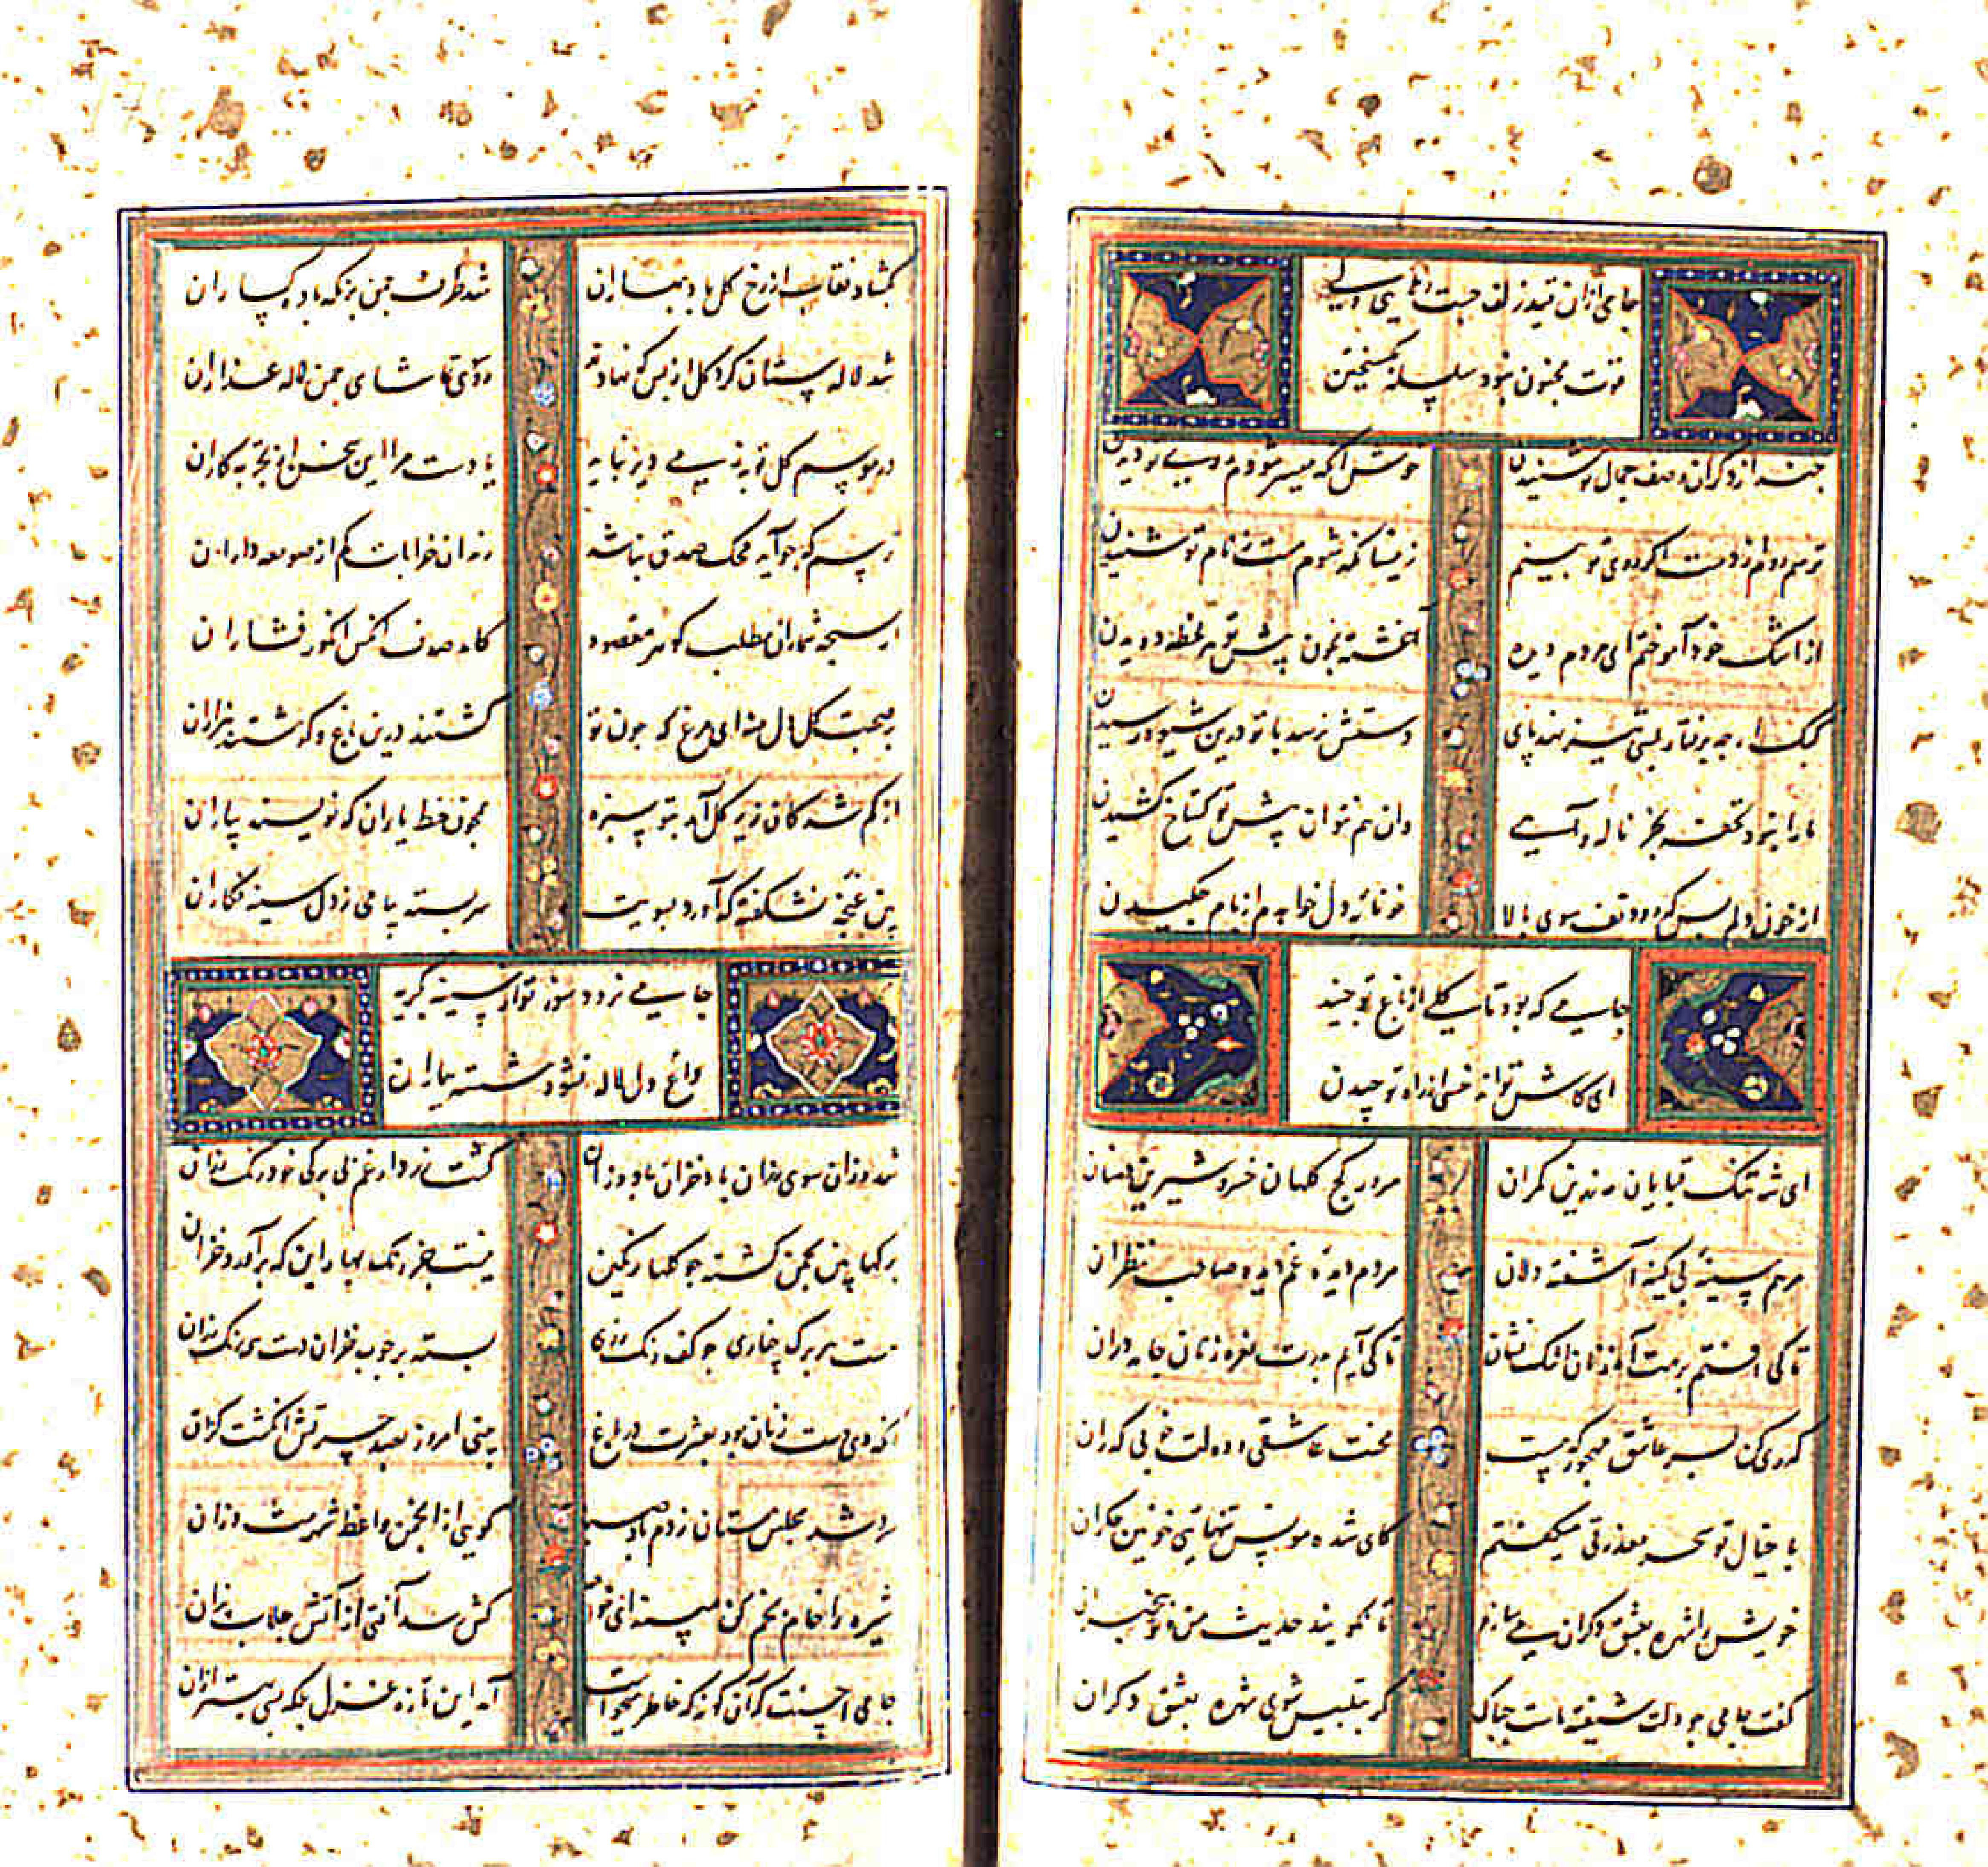 جامی ازان قید زلف جست رهایی ولی
قوت مجنون نبود سلسله بگسیختن
چند از دگران وصف جمال تو شنیدن
خوش آنکه میسر شودم روی تو دیدن
ترسم روم از دست اگر روی تو بینم
زینسان که شوم مست ز نام تو شنیدن
از اشک خود آموختم ای مردم دیده
آغشته بخون پیش تو هر لحظه دویدن
کبک ار چه برفتار بسی تیز نهد پای
دستش نرسد با تو درین شیوه رسیدن
ما را نبود تحفه بجز ناله و آهی
وان هم نتوان پیش تو گستاخ کشیدن
از خون دلم بس که رود تف سوی بالا
خونابه دل خواهدم از بام چکیدن
جامی که بود تا گلی از باغ تو چیند
ای کاش تواند خسی از راه تو چیدن
ای شه تنگ قبایان مه زرین کمران
سرور کج کلهان خسرو شیرین دهنان
مرهم سینه بی کینه آشفته دلان
مردم دیده غم دیده صاحب نظران
تا کی افتم برهت آه زنان اشک فشان
تا کی آیم بدرت نعره زنان جامه دران
گذری کن بسر عاشق مهجور که نیست
محنت عاشقی و دولت خوبی گذران
با خیال تو سحر معذرتی میگفتم
کای شده مونس تنهایی خونین جگران
خویش را شهره بعشق دگران می سازم
تا نگویند حدیث من و تو بیخبران
گفت جامی چو دلت شیفته ماست چه باک
گر بتلبیس شوی شهره بعشق دگران
بگشاد نقاب از رخ گل باد بهاران
شد طرف چمن بزمگه باده گساران
شد لاله ستان گرد گل از بس که نهادند
روی تماشای چمن لاله عذاران
در موسم گل توبه ز می دیر نپاید
یادست مرا این سخن از تجربه کاران
ترسم که چو آید محک صدق نباشد
رندان خرابات کم از صومعه داران
از سبحه شماران مطلب گوهر مقصود
کامد صدف آن کف انگور فشاران
بر صحبت گل دل منه ای مرغ که چون تو
گشتند درین باغ و گذشتند هزاران
از گم شدگان زیر گل آمد بتو سبزه
همچون خط یاران که نویسند بیاران
بین غنچه نشکفته که آورد بسویت
سر بسته پیامی ز دل سینه فگاران
جامی نرود سوز تو از سینه بگریه
داغ دل لاله نشود شسته بباران
شد وزان سوی رزان باد خزان باد وزان
گشت زرد از غم بی برگی خود رنگ رزان
برگها بین بچمن گشته چو گلها رنگین
نیست جز رنگ بهار این که برآورد خزان
هست هر برگ چناری چو کف رنگ رزی
بسته بر چوب خزان دست ی رنگ رزان
آنکه دی دست زنان بود بعشرت در باغ
بینی امروز بصد حسرتش انگشت گزان
سرد شد مجلس مستان ز دم باد
گویی از انجمن واعظ شهرست وزان
شیره را خام بخم کن مپسند ای خواجه
کش رسد آفتی از آتش جلاب پزان
جامی احسنت کز آن گونه که خاطر میخواست
آمد این تازه غزل بلکه بسی بهتر ازان